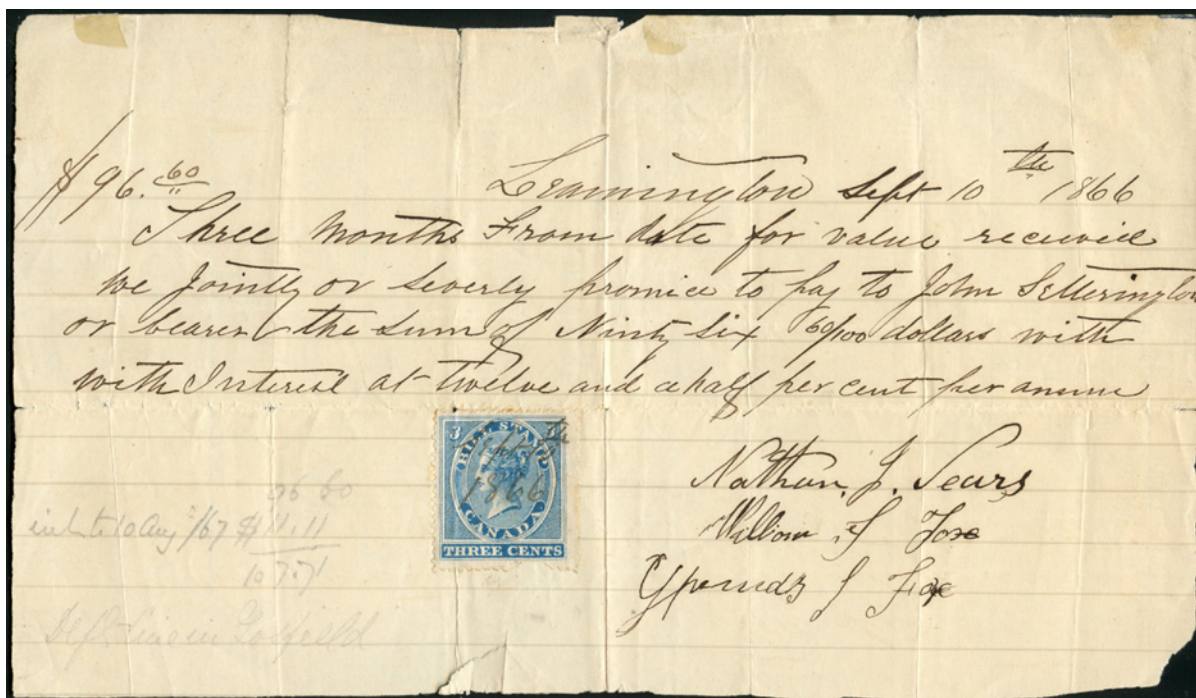 $96.60
Leamington Sept 10th 1866
Three months From date for value received
we Jointly or severly promice to pay to John Setterington
or bearer the sum of Ninty six 60/100 dollars with
with Interest at twelve and a half per cent per annum
3
BILL STAMP
Sept 10th
1866
CANADA
THREE CENTS
Nathan J. Sears
William S Fox
J Fox
96 60
int to 10 Aug /67 $11.11
107.71
Defts live in Gosfield